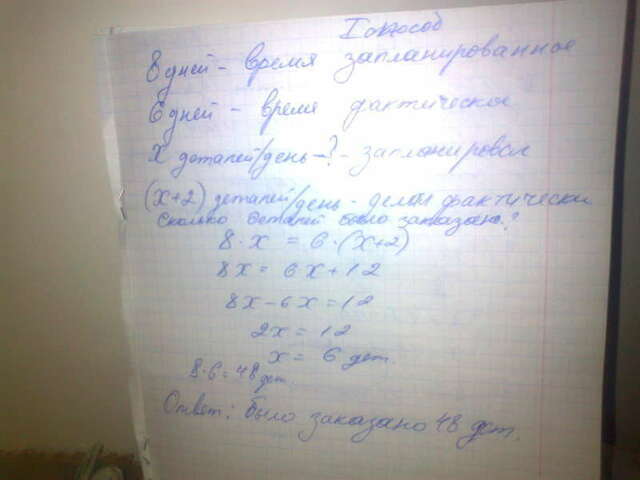 I способ
8 дней - время запланированное
6 дней - время фактическое
х деталей/день -? - запланировал
(х+2) деталей/день - делал фактически
Сколько деталей было заказано?
8 · х = 6 · (х+2)
8х = 6х + 12
8х - 6х = 12
2х = 12
х = 6 дет.
8·6 = 48 дет.
Ответ: было заказано 48 дет.